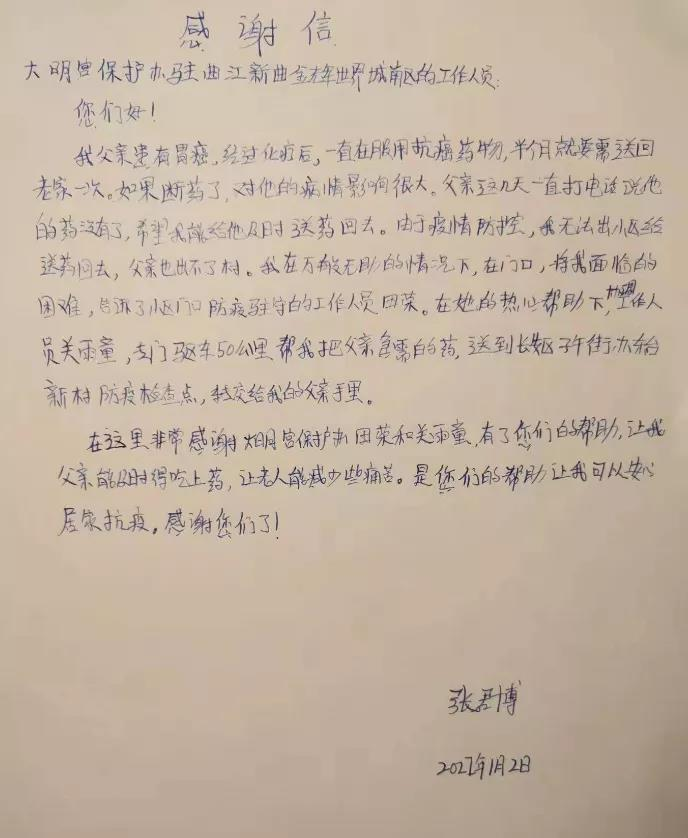 感谢信
大明宫保护办驻曲江新曲金禾年世界城南区的工作人员:
您们好!
我父亲患有胃癌,经过化疗后,一直在服用抗癌药物,半个月就要需送回
老家一次。如果断药了,对他的病情影响很大。父亲这几天一直打电话说他
的药没有了,希望我能给他及时送药回去。由于疫情防控,我无法出小区给
送药回去,父亲也出不了村。我在万般无助的情况下,在门口,将我面临的
困难,告诉了小区门口防疫驻守的工作人员田荣。在她的热心帮助下,工作人
员关雨童,专门驱车50公里帮我把父亲急需的药,送到长安区子午街办台
新村防疫检查点,转交给我的父亲手里。
在这里非常感谢大明宫保护办田荣和关雨童,有了您们的帮助,让我
父亲能及时得吃上药,让老人能减少些痛苦。是您们的帮助让我可以安心
居家抗疫。感谢您们了!
张君博
2022年1月2日